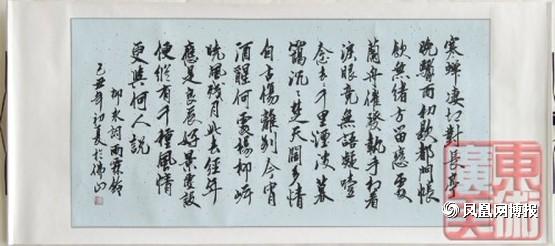 寒蟬淒切對長亭
晚驟雨初歇都門帳
飲無緒方留戀處
蘭舟催發執手相看
淚眼竟無語凝噎
念去々千里煙波暮
靄沉々楚天闊多情
自古傷離別今宵
酒醒何處楊柳岸
曉風殘月此去經年
應是良辰好景虛設
便縱有千種風情
更與何人說
柳永詞雨霖鈴
己丑年初夏於佛山
凤凰网博报